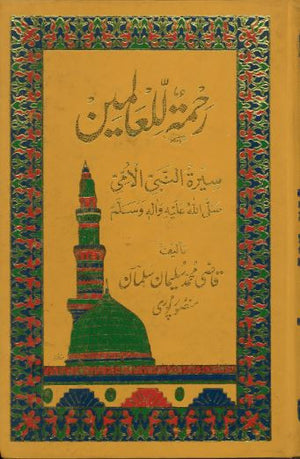 رحمة للعالمين
سيرة النبي الأمي
صلى الله عليه وآله وسلم
تاليف
قاضی محمد سلیمان سلمان
منصورپوری